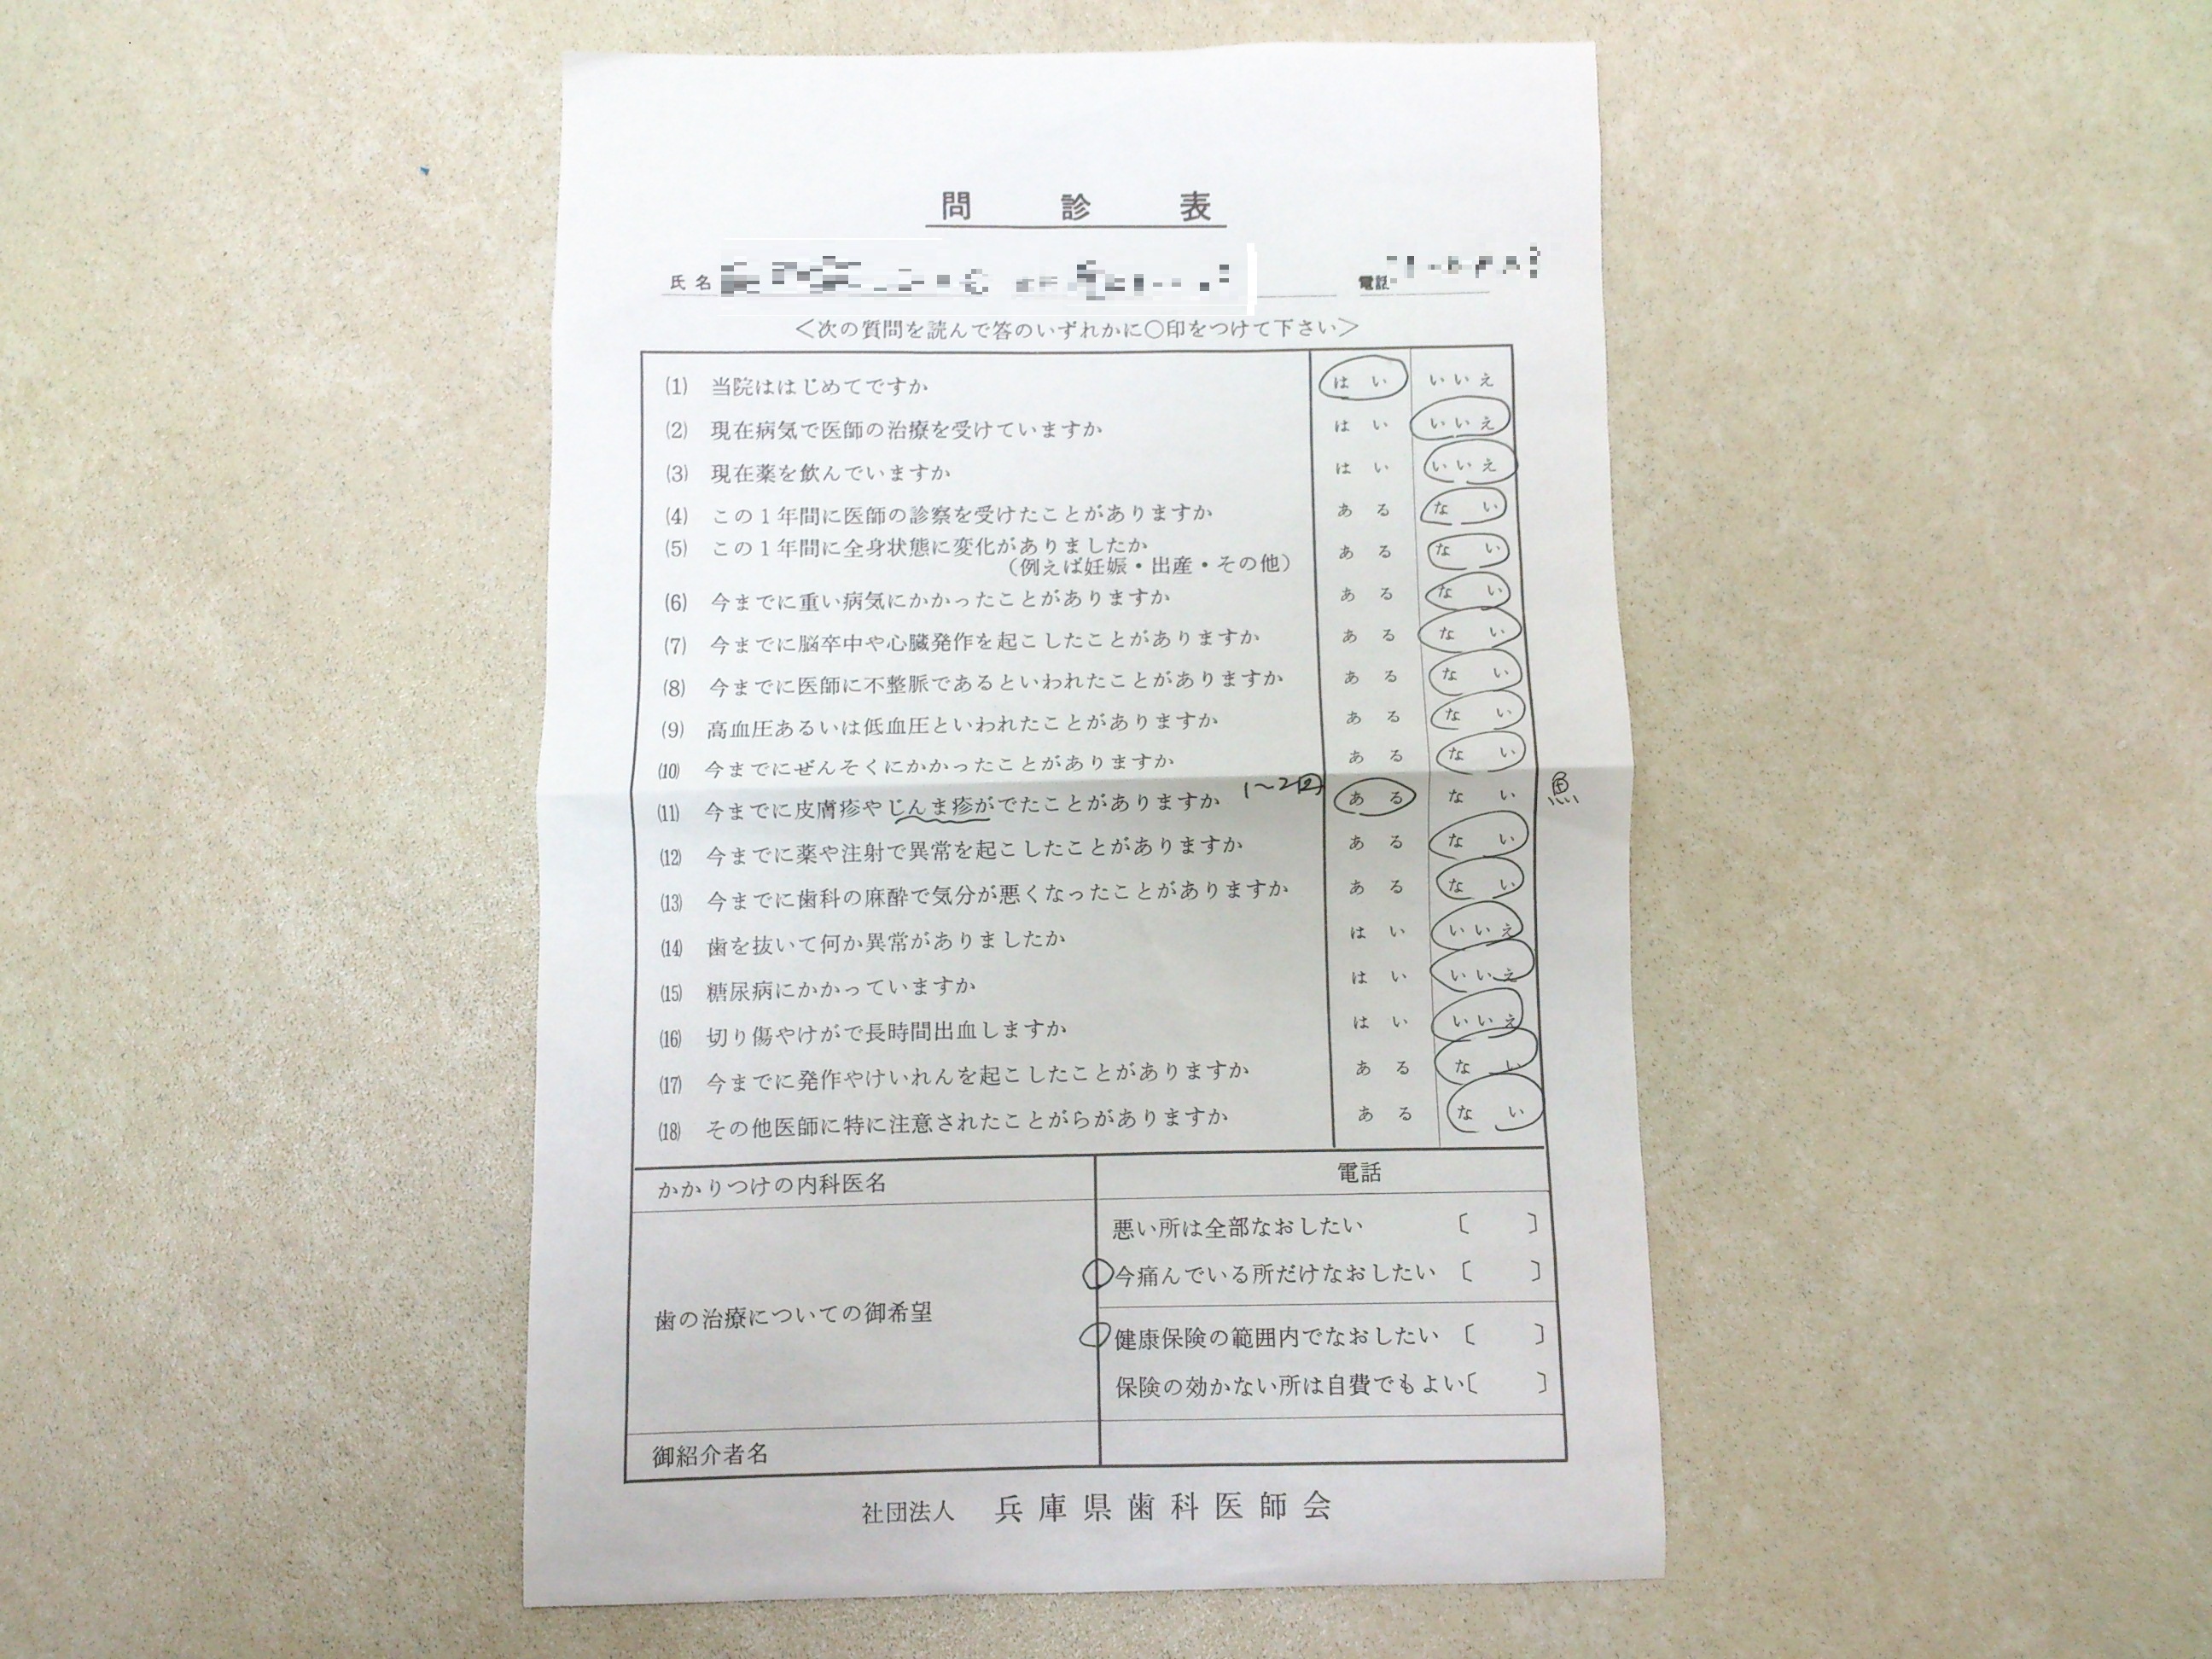 問診表
氏名
電話
＜次の質問を読んで答のいずれかに○印をつけて下さい＞
(1) 当院ははじめてですか はい いいえ
(2) 現在病気で医師の治療を受けていますか はい いいえ
(3) 現在薬を飲んでいますか はい いいえ
(4) この1年間に医師の診察を受けたことがありますか ある ない
(5) この1年間に全身状態に変化がありましたか ある ない
（例えば妊娠・出産・その他）
(6) 今までに重い病気にかかったことがありますか ある ない
(7) 今までに脳卒中や心臓発作を起こしたことがありますか ある ない
(8) 今までに医師に不整脈であるといわれたことがありますか ある ない
(9) 高血圧あるいは低血圧といわれたことがありますか ある ない
(10) 今までにぜんそくにかかったことがありますか ある ない
(11) 今までに皮膚疹やじんま疹がでたことがありますか 1〜2回 ある ない 魚
(12) 今までに薬や注射で異常を起こしたことがありますか ある ない
(13) 今までに歯科の麻酔で気分が悪くなったことがありますか ある ない
(14) 歯を抜いて何か異常がありましたか はい いいえ
(15) 糖尿病にかかっていますか はい いいえ
(16) 切り傷やけがで長時間出血しますか はい いいえ
(17) 今までに発作やけいれんを起こしたことがありますか ある ない
(18) その他医師に特に注意されたことがらがありますか ある ない
かかりつけの内科医名 電話
歯の治療についての御希望
悪い所は全部なおしたい〔 〕
今痛んでいる所だけなおしたい〔 〕
健康保険の範囲内でなおしたい〔 〕
保険の効かない所は自費でもよい〔 〕
御紹介者名
社団法人 兵庫県歯科医師会